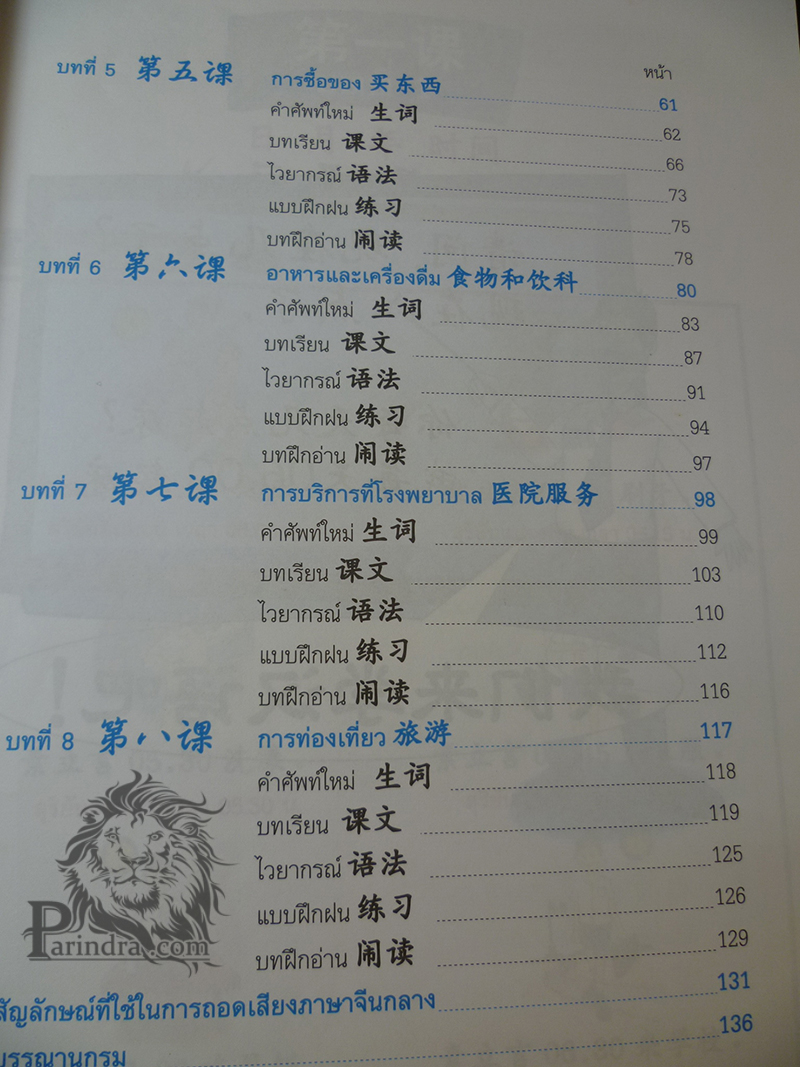 หน้า
บทที่ 5 第五课 การซื้อของ 买东西 61
คำศัพท์ใหม่ 生词 62
บทเรียน 课文 66
ไวยากรณ์ 语法 73
แบบฝึกฝน 练习 75
บทฝึกอ่าน 闹读 78
บทที่ 6 第六课 อาหารและเครื่องดื่ม 食物和饮科 80
คำศัพท์ใหม่ 生词 83
บทเรียน 课文 87
ไวยากรณ์ 语法 91
แบบฝึกฝน 练习 94
บทฝึกอ่าน 闹读 97
บทที่ 7 第七课 การบริการที่โรงพยาบาล 医院服务 98
คำศัพท์ใหม่ 生词 99
บทเรียน 课文 103
ไวยากรณ์ 语法 110
แบบฝึกฝน 练习 112
บทฝึกอ่าน 闹读 116
บทที่ 8 第八课 การท่องเที่ยว 旅游 117
คำศัพท์ใหม่ 生词 118
บทเรียน 课文 119
ไวยากรณ์ 语法 125
แบบฝึกฝน 练习 126
บทฝึกอ่าน 闹读 129
Parindra.com
สัญลักษณ์ที่ใช้ในการถอดเสียงภาษาจีนกลาง 131
บรรณานุกรม 136